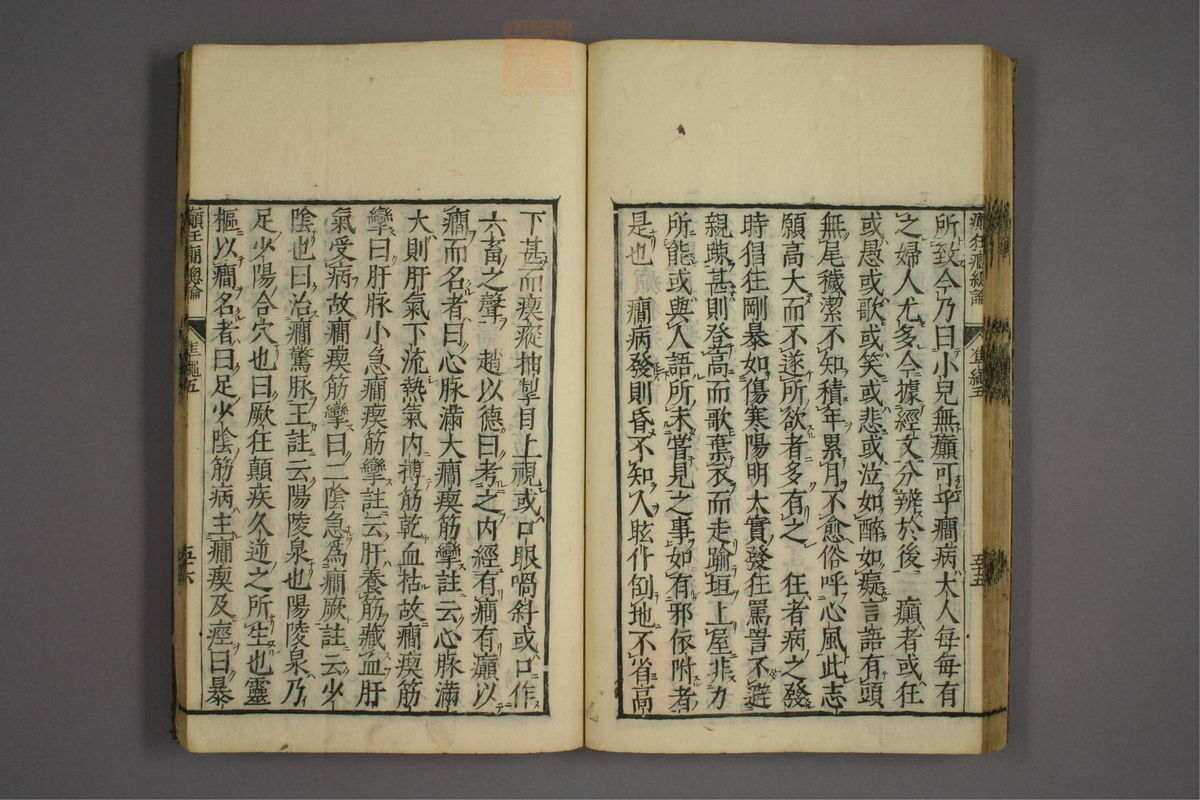 癲狂癇總論
準繩五
五十五
所致今乃曰小兒無癲可乎癇病大人每每有
之婦人尤多今據經文分辨於後 癲者或狂
或愚或歌或笑或悲或泣如醉如癡言語有頭
無尾穢潔不知積年累月不愈俗呼心風此志
願高大而不遂所欲者多有之 狂者病之發
時猖狂剛暴如傷寒陽明太實發狂罵詈不避
親疎甚則登高而歌棄衣而走踰垣上屋非力
所能或與人語所未嘗見之事如有邪依附者
是也 癇病發則昏不知人眩仆倒地不省高
下甚而瘈瘲抽掣目上視或口眼喎斜或口作
六畜之聲 趙以德曰考之內經有癇有癲以
癇而名者曰心脉滿大癇瘈筋攣註云心脉滿
大則肝氣下流熱氣內搏筋乾血枯故癇瘈筋
攣曰肝脉小急癇瘈筋攣註云肝養筋藏血肝
氣受病故癇瘈筋攣曰二陰急爲癇厥註云少
陰也曰治癇驚脉王註云陽陵泉也陽陵泉乃
足少陽合穴也曰厥狂顛疾久逆之所生也靈
樞以癇名者曰足少陰筋病主癇瘈及痙曰暴
癲狂癇總論
準繩五
五十六